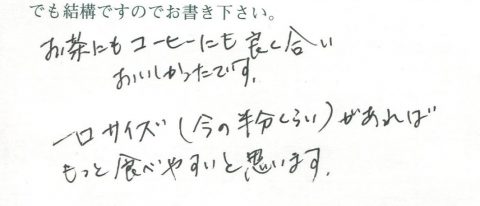 でも結構ですのでお書き下さい。
お茶にもコーヒーにも良く合い
おいしかったです。
一口サイズ(今の半分くらい)があれば
もっと食べやすいと思います。